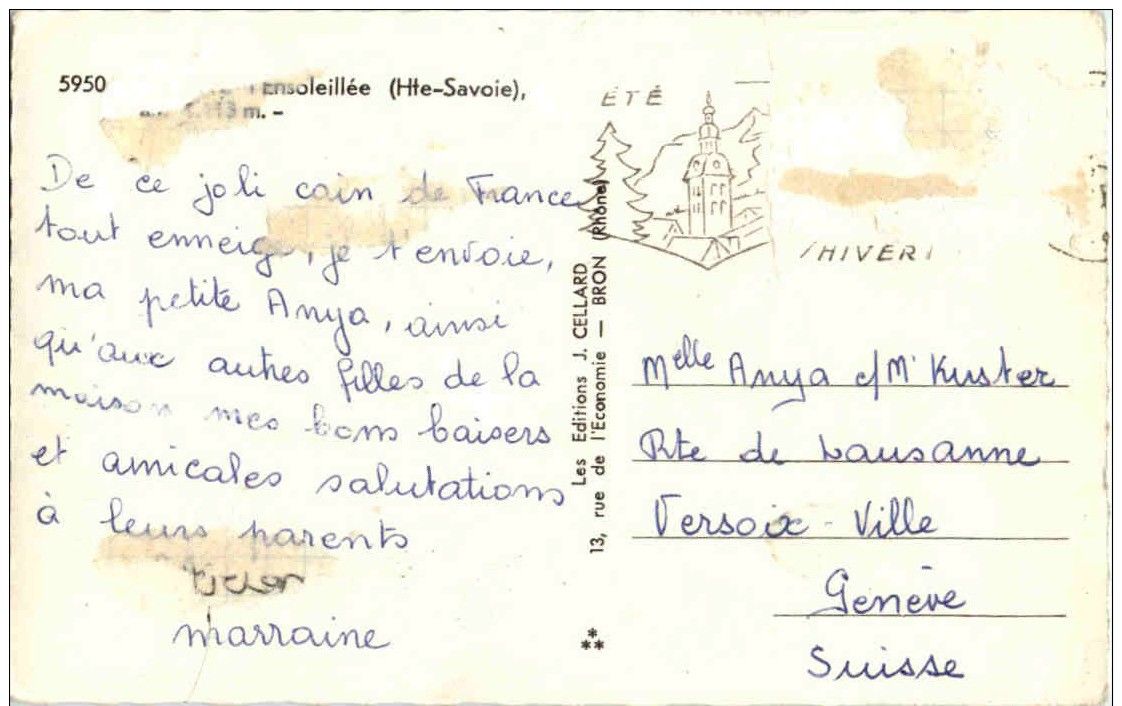 5950 Ensoleillée (Hte-Savoie),
m. -
De ce joli coin de France
tout enneigé, je t'envoie,
ma petite Anya, ainsi
qu'aux autres filles de la
maison mes bons baisers
et amicales salutations
à leurs parents
marraine
Les Editions J. CELLARD
13, rue de l'Economie — BRON (Rhône)
ÉTÉ
HIVER
Melle Anya c/Mr Kuster
Rte de Lausanne
Versoix - Ville
Genève
Suisse